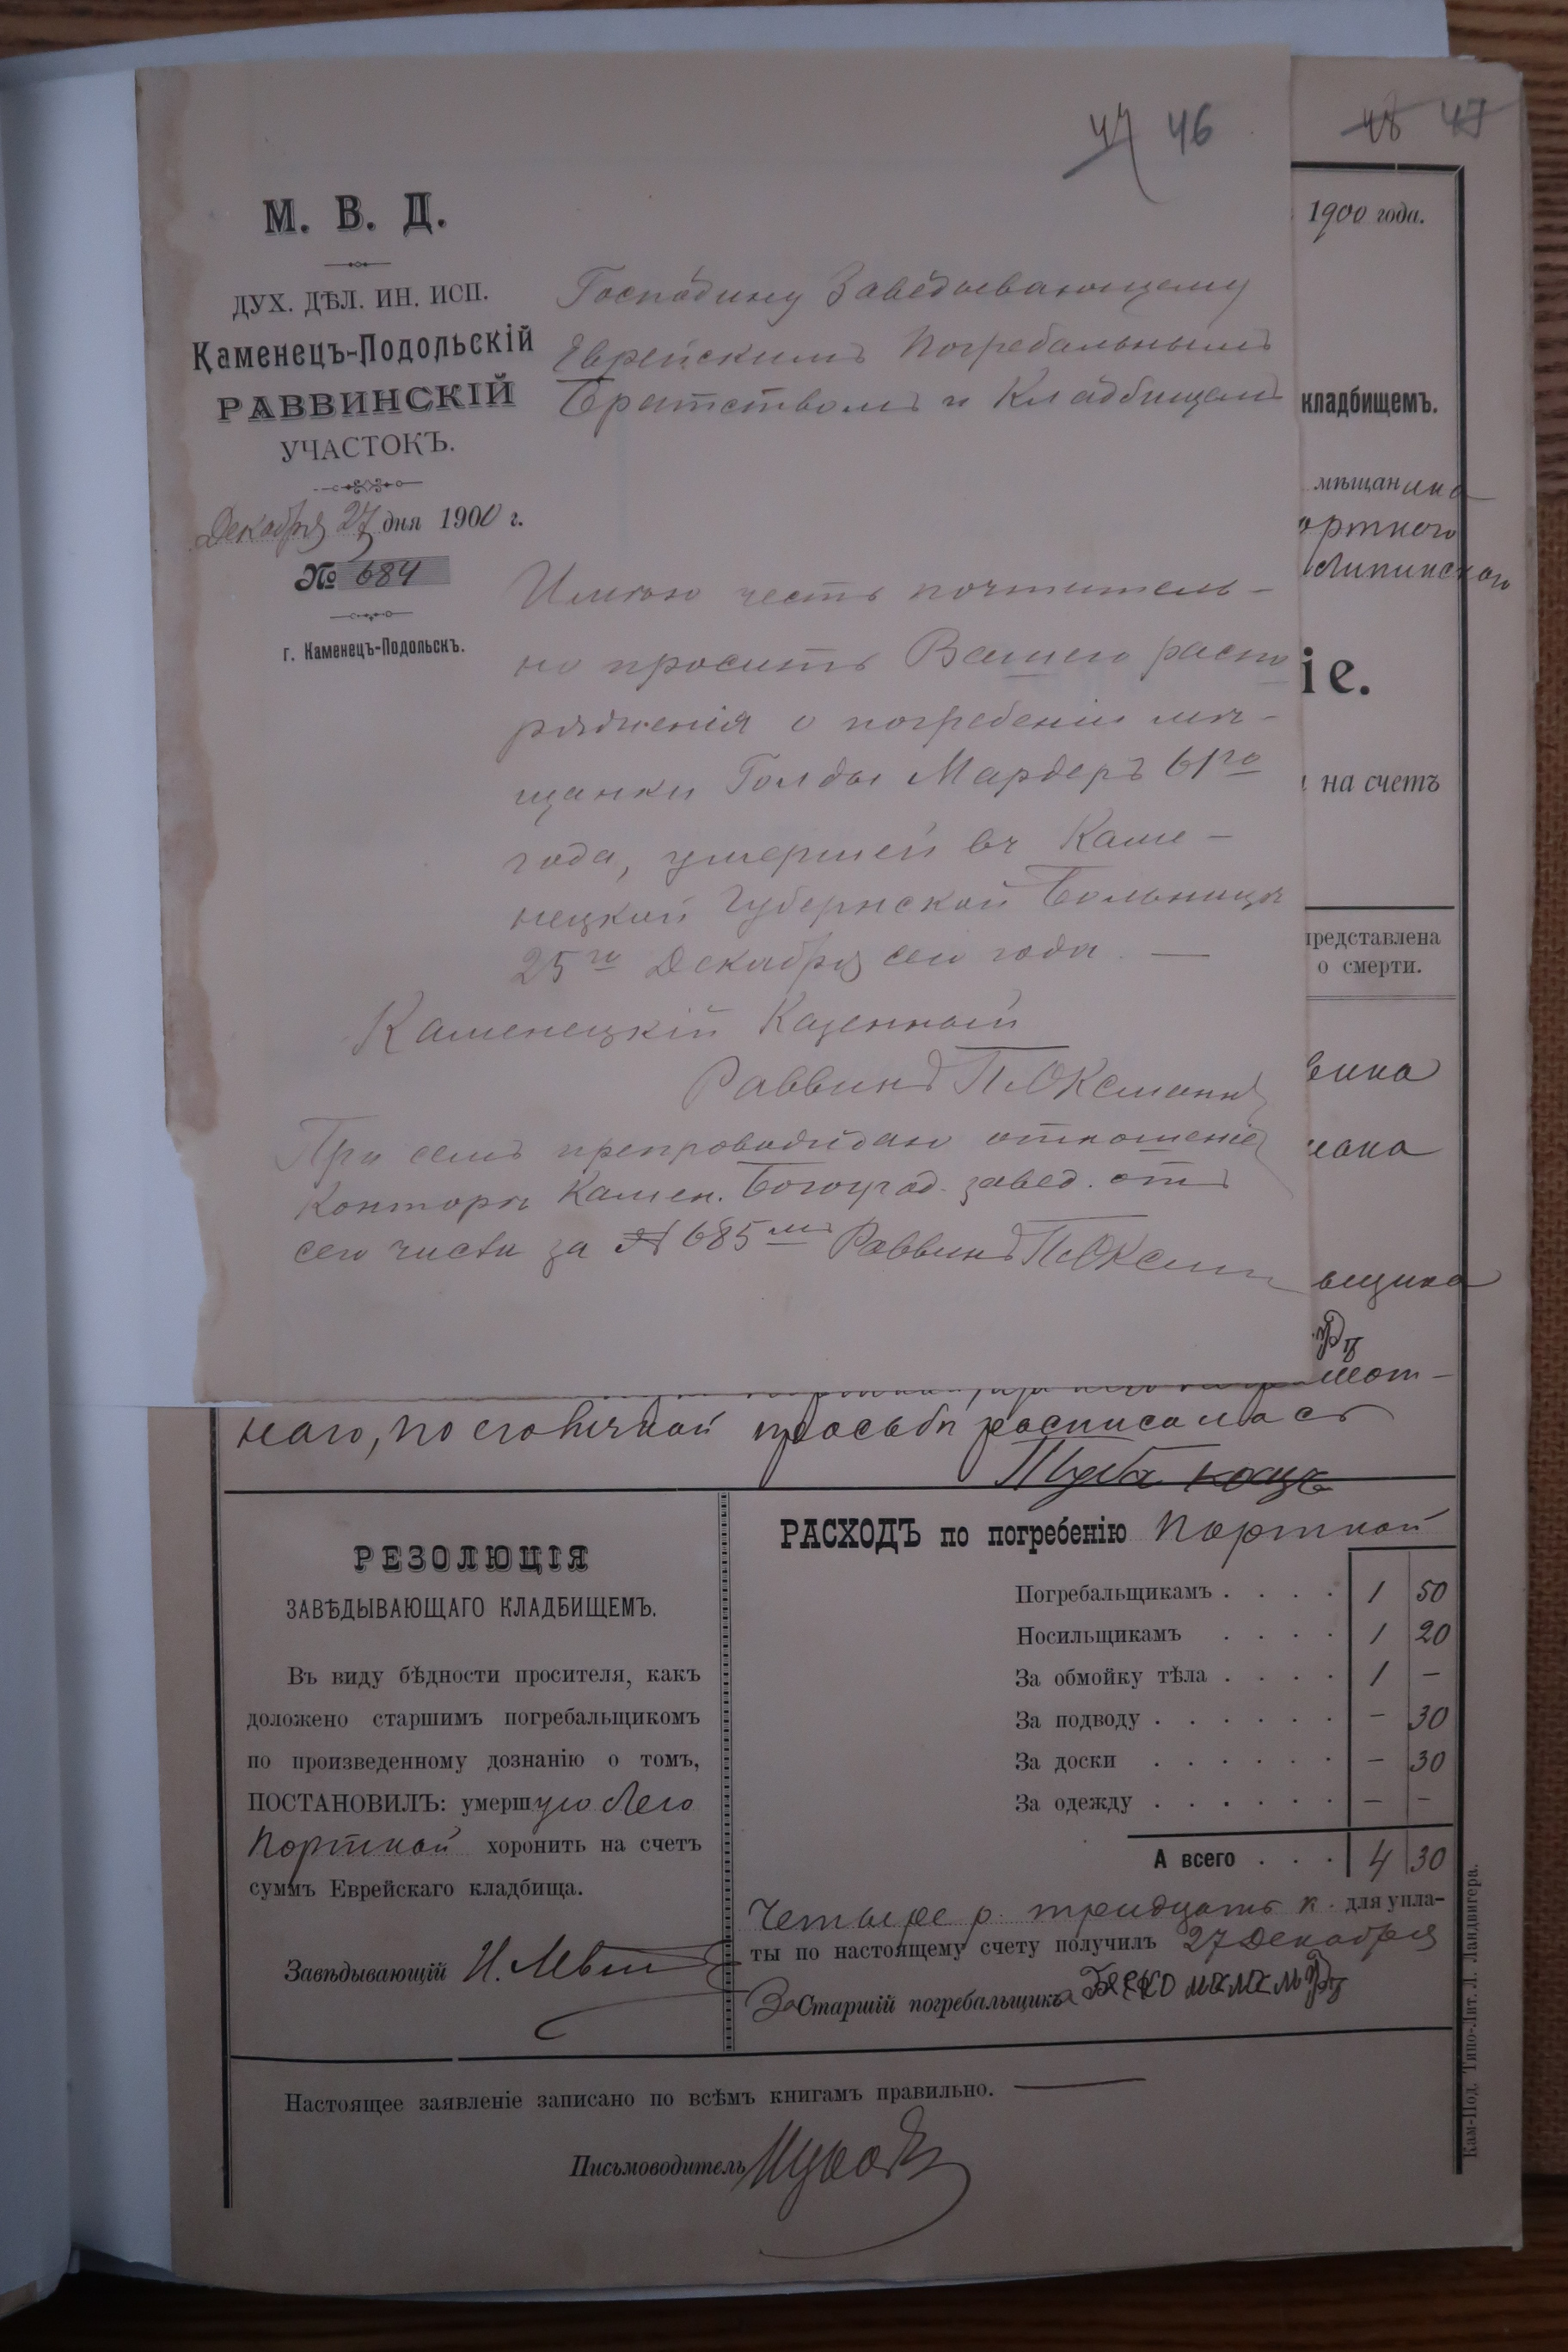 47 46
М. В. Д.
ДУХ. ДѢЛ. ИН. ИСП.
Каменецъ-Подольскій
РАВВИНСКІЙ
УЧАСТОКЪ.
Декабря 27 дня 1900 г.
№ 684
г. Каменецъ-Подольскъ.
Господину Завѣдывающему
Еврейскимъ Погребальнымъ
Братствомъ и Кладбищемъ
Имѣю честь почтитель-
но просить Вашего распо
ряженія о погребеніи мѣ-
щанки Голды Мардеръ 61го
года, умершей въ Каме-
нецкой Губернской Больницѣ
25го Декабря сего года. —
Каменецкій Казенный
Раввинъ П. Оксманъ
При семъ препровождаю отношеніе
Конторы Камен. Богоугод. завед. отъ
сего числа за № 685мъ Раввинъ П. Оксман
48 47
1900 года.
кладбищемъ.
мѣщанина
ортного
Липинского
іе.
на счетъ
представлена
о смерти.
вина
мана
ьщика
мот-
наго, по его личной просьбѣ росписалась
РЕЗОЛЮЦІЯ
ЗАВѢДЫВАЮЩАГО КЛАДБИЩЕМЪ.
Въ виду бѣдности просителя, какъ
доложено старшимъ погребальщикомъ
по произведенному дознанію о томъ,
ПОСТАНОВИЛЪ: умершую Лею
Портной хоронить на счетъ
суммъ Еврейскаго кладбища.
Завѣдывающій
РАСХОДЪ по погребенію Портной
Погребальщикамъ . . . . 1 50
Носильщикамъ . . . . 1 20
За обмойку тѣла . . . . 1 —
За подводу . . . . . . — 30
За доски . . . . . . — 30
За одежду . . . . . . — —
А всего . . . 4 30
Четыре р. тридцать к. для упла-
ты по настоящему счету получилъ 27 Декабря
За Старшій погребальщика
Настоящее заявленіе записано по всѣмъ книгамъ правильно. —
Письмоводитель
Кам-Под. Типо-Лит. Л. Ландвигера.